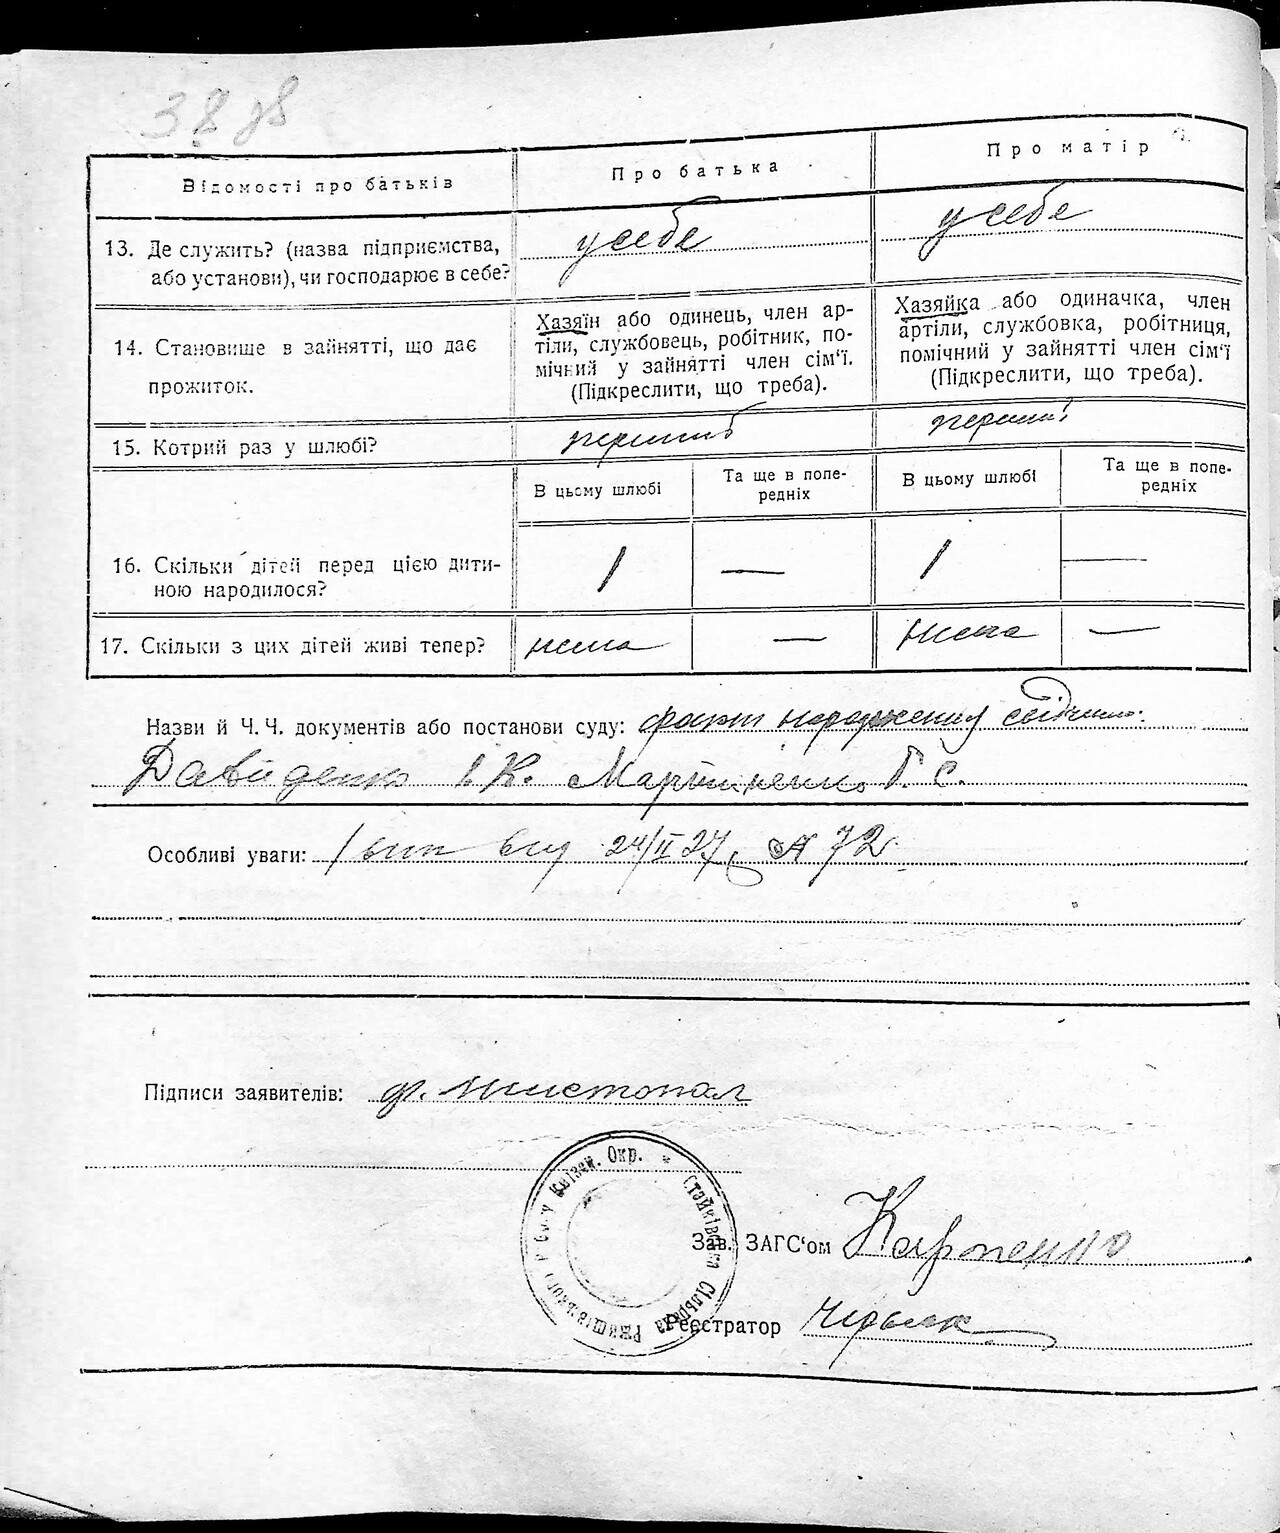 38 зв
Відомості про батьків
Про батька
Про матір
13. Де служить? (назва підприємства, або установи), чи господарює в себе?
у себе
у себе
14. Становище в зайнятті, що дає прожиток.
Хазяїн або одинець, член ар-
тіли, службовець, робітник, по-
мічний у зайнятті член сім'ї.
(Підкреслити, що треба).
Хазяйка або одиначка, член
артіли, службовка, робітниця,
помічний у зайнятті член сім'ї
(Підкреслити, що треба).
15. Котрий раз у шлюбі?
перший
перший
В цьому шлюбі
Та ще в попе-
редніх
В цьому шлюбі
Та ще в попе-
редніх
16. Скільки дітей перед цією дити-
ною народилося?
1 — 1 —
17. Скільки з цих дітей живі тепер?
нема — нема —
Назви й Ч. Ч. документів або постанови суду: факт народження свідчили:
Давиденко К. Мартиненко Г. С.
Особливі уваги: 24/II 27 № 72
Підписи заявителів: Шистопал
Стайківська Сільрада Ржищівського р-ну Київськ. Окр.
Зав. ЗАГС'ом Карпенко
Реєстратор